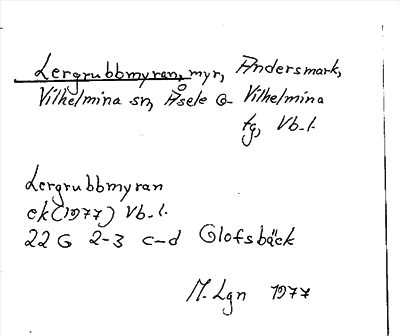 Lergrubbmyran, myr, Andersmark,
Vilhelmina sn, Åsele o Vilhelmina
tg, Vb.l.
Lergrubbmyran
ek (1977) Vb.l.
22 G 2-3 c-d Glofsbäck
M. Lgn 1977